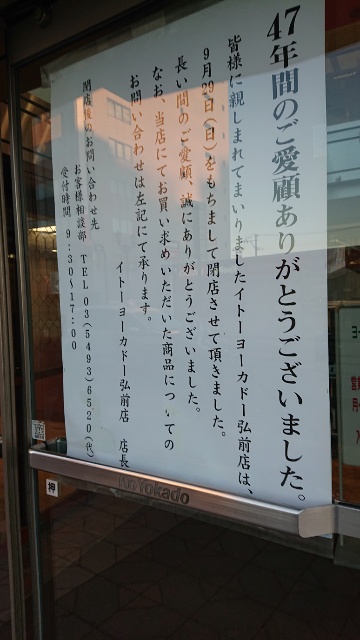 47年間のご愛顧ありがとうございました。
皆様に親しまれてまいりましたイトーヨーカドー弘前店は、
9月29日(日)をもちまして閉店させて頂きました。
長い間のご愛顧、誠にありがとうございました。
なお、当店にてお買い求めいただいた商品についての
お問い合わせは左記にて承ります。
イトーヨーカドー弘前店 店長
閉店後のお問い合わせ先
お客様相談部 TEL 03(5493)6520(代)
受付時間 9:30~17:00
押
Ito Yokado